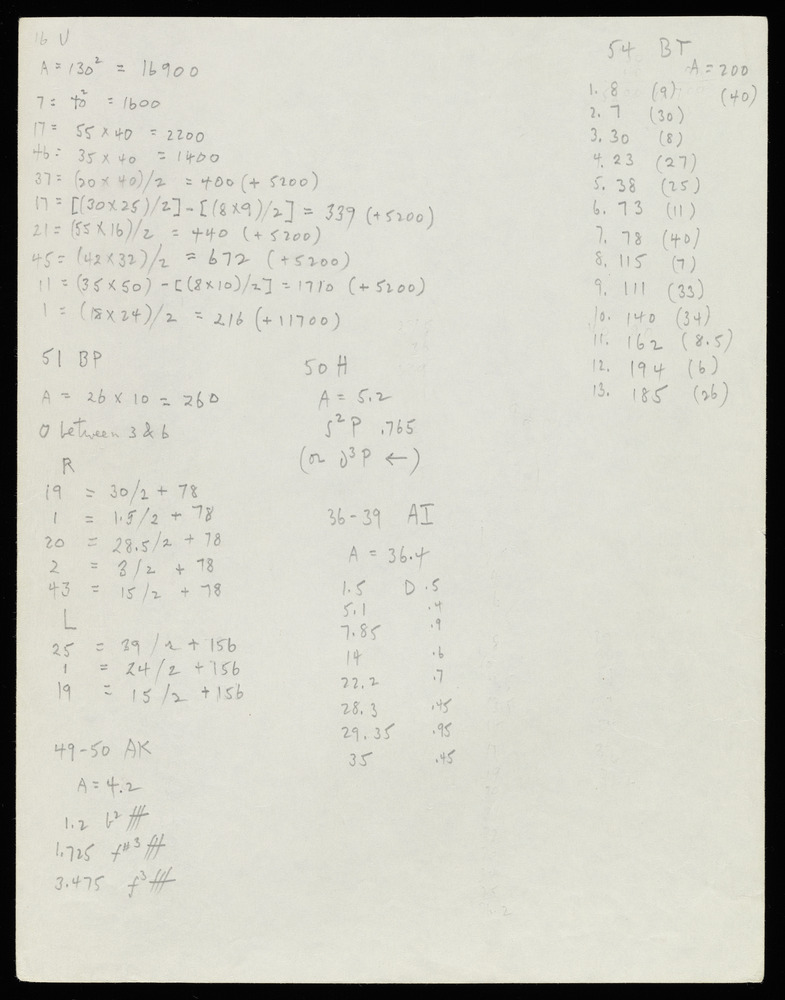 16 U
A = 130² = 16900
7 = 40² = 1600
17 = 55 x 40 = 2200
46 = 35 x 40 = 1400
37 = (20 x 40)/2 = 400 (+ 5200)
17 = [(30x25)/2] - [(8x9)/2] = 339 (+5200)
21 = (55 x 16)/2 = 440 (+ 5200)
45 = (42 x 32)/2 = 672 (+5200)
11 = (35 x 50) - [(8x10)/2] = 1710 (+ 5200)
1 = (18 x 24)/2 = 216 (+ 11700)
51 BP
A = 26 x 10 = 260
0 between 3 & 6
R
19 = 30/2 + 78
1 = 1.5/2 + 78
20 = 28.5/2 + 78
2 = 3/2 + 78
43 = 15/2 + 78
L
25 = 39/2 + 156
1 = 24/2 + 156
19 = 15/2 + 156
49-50 AK
A = 4.2
1.2 b² fff
1.725 f#³ fff
3.475 f³ fff
50 H
A = 5.2
P .765
(or P ←)
36-39 AI
A = 36.4
1.5 D .5
5.1 .4
7.85 .9
14 .6
22.2 .7
28.3 .45
29.35 .95
35 .45
54 BT
A = 200
1. 8 (9) (40)
2. 7 (30)
3. 30 (8)
4. 23 (27)
5. 38 (25)
6. 73 (11)
7. 78 (40)
8. 115 (7)
9. 111 (33)
10. 140 (34)
11. 162 (8.5)
12. 194 (6)
13. 185 (26)